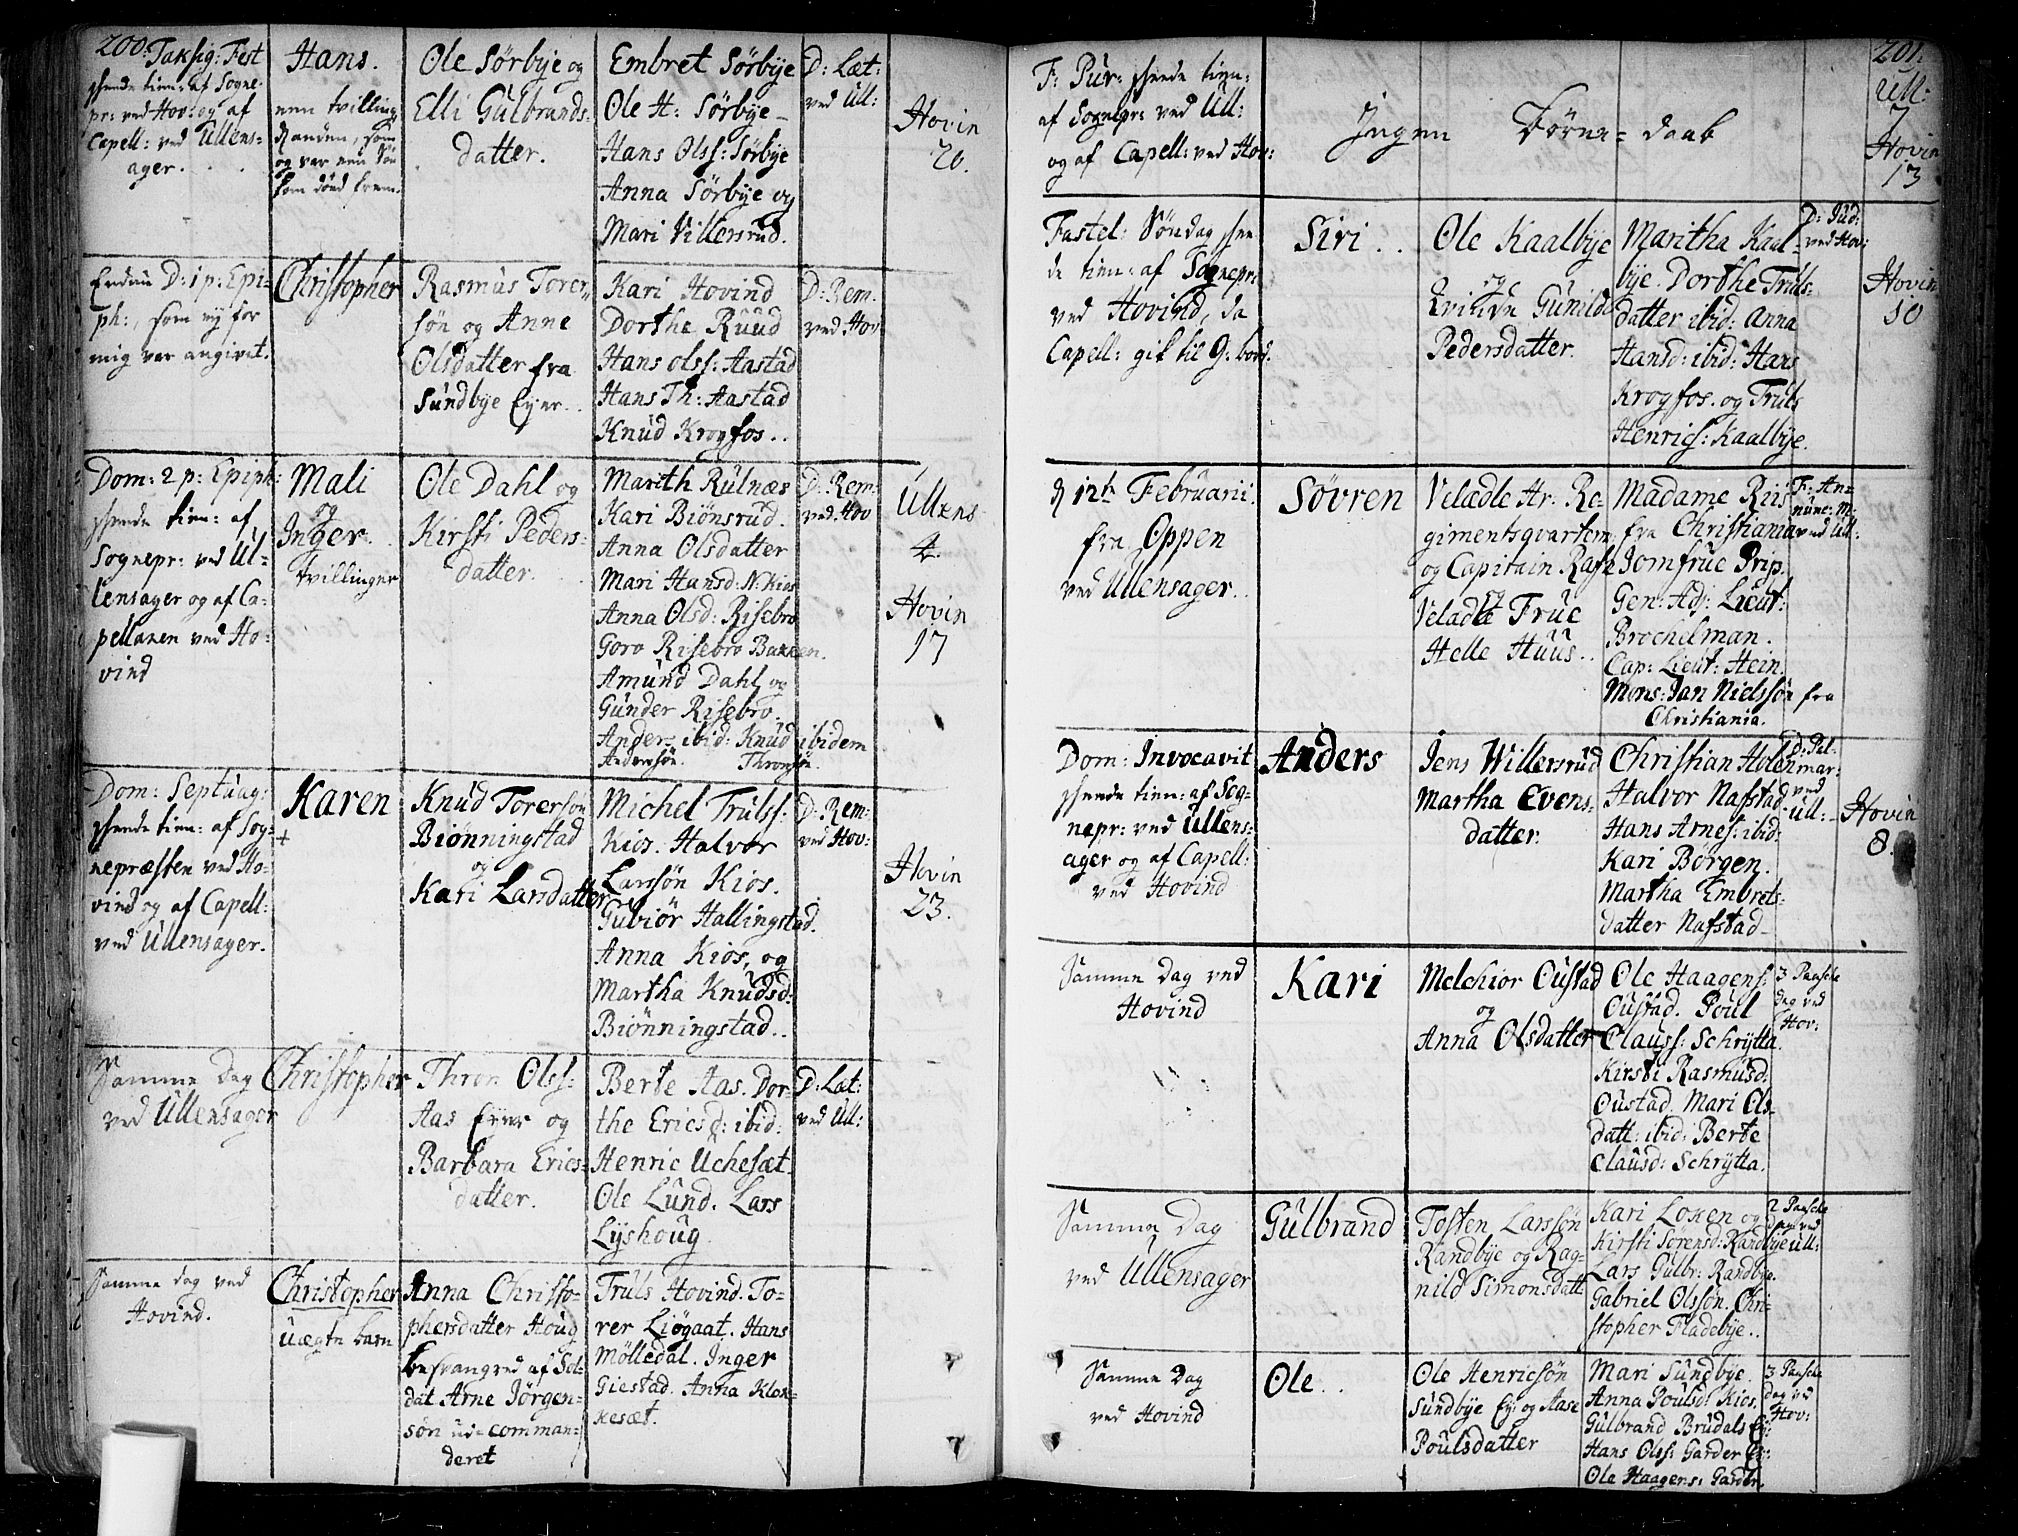 200.
Taksig: Fest
skeede tien: af Sogne-
pr: ved Hov: og af
Capell: ved Ullens-
ager. . .
Hans.
een tvilling,
den anden, som
og var een Søn
kom død frem.
Ole Sørbye og
Elli Gulbrands-
datter.
Embret Sørbye
Ole H: Sørbye
Hans Olss: Sørbye
Anna Sørbye og
Mari Villersrud.
D: Læt:
ved Ull:
Hovin
20.
Endnu D: 1 p: Epi-
ph:, som ey for
mig var angivet.
Christopher
Rasmus Torer-
søn og Anne
Olsdatter fra
Sundbye Eyer.
Kari Hovind
Dorthe Ruud
Hans Olss: Aastad
Hans Th: Aastad
Knud Krogfos..
D: Rem:
ved Hov
Dom: 2 p: Epiph:
skeede tien: af
Sognepr: ved Ul-
lensager og af Ca-
pellanen ved Ho-
vind
Mali
og
Inger.
tvillinger
Ole Dahl og
Kirsti Peders-
datter.
Marith Rulnæs
Kari Biønsrud.
Anna Olsdatter
Mari Hansd: N: Kios
Anna Olsd: Risebro
Goro Risebro Bakken.
Amund Dahl og
Gunder Risebro.
Anders ibid: Knud ibidem
Andersøn. Thronsøn.
D: Rem:
ved Hov
Ullens
4.
Hovin
17
Dom: Septuag:
skeede tien: af Sog-
nepræsten ved Ho-
vind og af Capell:
ved Ullensager.
+
Karen
Knud Torersøn
Biønningstad
og
Kari Larsdatter
Michel Trulss:
Kios. Halvor
Larssøn Kios.
Gubiør Hallingstad.
Anna Kios, og
Martha Knudsd:
Biønningstad..
D: Rem:
ved Hov:
Hovin
23.
Samme Dag
ved Ullensager
Christopher
Thron Olss:
Aas Eyer og
Barbara Erics-
datter.
Berte Aas. Dor-
the Ericsd: ibid:
Henric Uchesæt
Ole Lund. Lars
Lyshoug.
D: Læt:
ved Ull:
Samme dag ved
Hovind.
Christopher
uægte barn
Anna Christo-
phersdatter Houg
besvangred af Sol-
dat Arne Jörgen-
søn ud-comman-
deret
Truls Hovind. To-
rer Liøgaat. Hans
Mølledal. Inger
Giestad. Anna Klok-
kesæt.
201.
F: Pur: skeede tien:
af Sognepr: ved Ull:
og af Capell: ved Hov:
Ingen Børne-daab
Ull:
7
Hovin
13
Fastel: Søndag skee-
de tien: af Sognepr:
ved Hovind, da
Capell: gik til G: bord.
Siri . .
Ole Kaalbye
og
Qvinde Gunild
Pedersdatter.
Maritha Kaal-
bye. Dorthe Truls-
datter ibid: Anna
Hansd: ibid: Hans
Krogfos. og Truls
Henrics: Kaalbye.
D: Jud:
ved Hov:
Hovin
10
d 12te Februarii.
fra Oppen
ved Ullensager.
Søvren
Velædle Hr. Re-
gimentsqvartem:
og Capitain Rasch
og
Velædle Frue
Helle Huus..
Madame Riis
fra Christiania
Jomfrue Prip.
Gen: Adj: Lieut:
Brochelman.
Cap: Lieut: Hein.
Mons: Jan Nielssøn fra
Christiania.
F: An-
nunc: M:
ved Ull:
Dom: Invocavit
skeede tien: af Sog-
nepr: ved Ullens-
ager og af Capell:
ved Hovind
Anders
Jens Willersrud
Martha Evens-
datter.
Christian Holen
Halvor Nafstad
Hans Arnes: ibid:
Kari Børgen.
Martha Embrets-
datter Nafstad
D: Pal-
mar:
ved
Ull:
Hovin
8.
Samme Dag ved
Hovind
Kari
Melchior Oustad
og
Anna Olsdatter
Ole Haagens:
Oustad. Poul
Clauss: Schrytta.
Kirsti Rasmusd:
Oustad. Mari Ols-
datt: ibid: Berte
Clausd: Schrytta.
3 Paaske
dag ved
Hov:
Samme Dag
ved Ullensager
Gulbrand
Tosten Larssøn
Randbye og Rag-
nild Simonsdatt
Kari Loken og
Kirsti Sørensd: Randbye
Lars Gulbr: Randbye.
Gabriel Olssøn. Chri-
stopher Fladebye..
2 Paaske
dag ved
Ull:
Samme Dag
ved Hovind
Ole . .
Ole Henricsøn
Sundbye Ey: og Aase
Poulsdatter
Mari Sundbye.
Anna Poulsd: Kios.
Gulbrand Brudals Ey:
Hans Olss: Garder Ey:
Ole Haagens: Garder.
3 Paaske
dag ved
Hov: